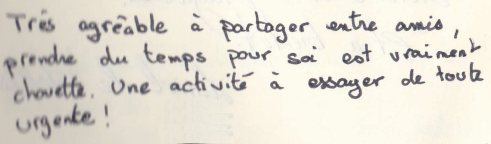 Très agréable à partager entre amis,
prendre du temps pour soi est vraiment
chouette. Une activité à essayer de toute
urgente !